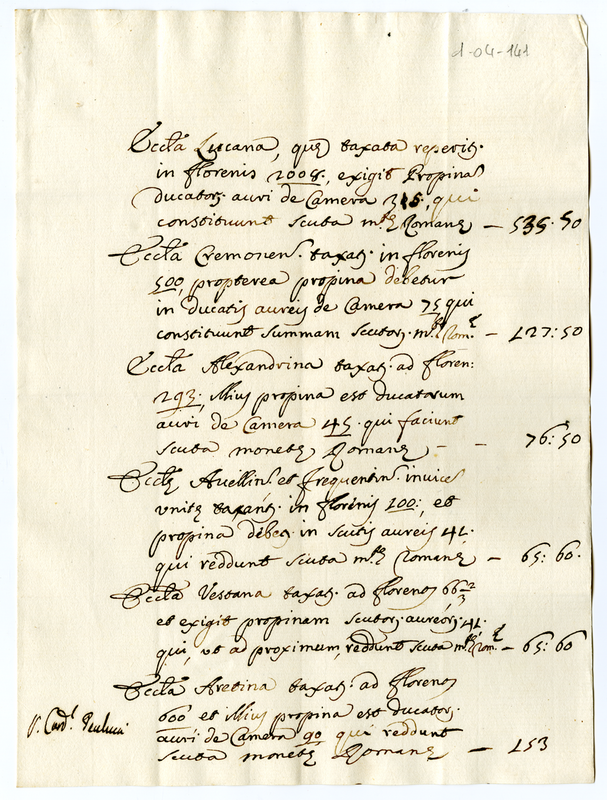 1-04-141
Eccl̃a Lucana, quę taxata reperit.
in florenis 2008., exigit Propinã
ducator. auri de Camera 315, qui
constituunt scuta m.tę Romanę — 535. 50
Eccl̃a Cremonen. taxat. in florenis
500, propterea propina debetur
in ducatis aureis de Camera 75 qui
constituunt summam scutor. m.tę Rom.ę — 127: 50
Eccl̃a Alexandrina taxat. ad floren:
293., illius propina est ducatorum
auri de Camera 45. qui faciunt
scuta monetę Romanę - - 76: 50
Eccl̃ę Avellin. et frequentin. invicẽ
unitę taxant. in florenis 100:, et
propina debet. in scutis aureis 41.
qui reddunt scuta m.tę Romanę — 65: 60.
Eccl̃a Vestana taxat. ad florenos 66 2/3
et exigit propinam scutor. aureor. 41.
qui, ut ad proximum, reddunt scuta m.tę Rom.ę — 65: 60
Eccl̃a Aretina taxat. ad florenos
600 et illius propina est ducator.
auri de Camera 90 qui reddunt
scuta monetę Romanę — 153
S. Card.l Paulucci